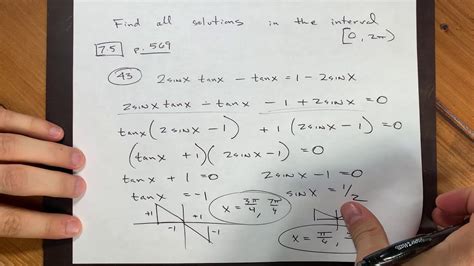 Find all solutions in the interval
[0, 2π)
7.5 p. 569
43 2sinx tanx - tanx = 1 - 2sinx
2sinx tanx - tanx - 1 + 2sinx = 0
tanx(2sinx - 1) + 1(2sinx - 1) = 0
(tanx + 1)(2sinx - 1) = 0
tanx + 1 = 0 2sinx - 1 = 0
tanx = -1 sinx = 1/2
+1 +1 x = 3π/4, 7π/4
-1 -1
x = π/6,